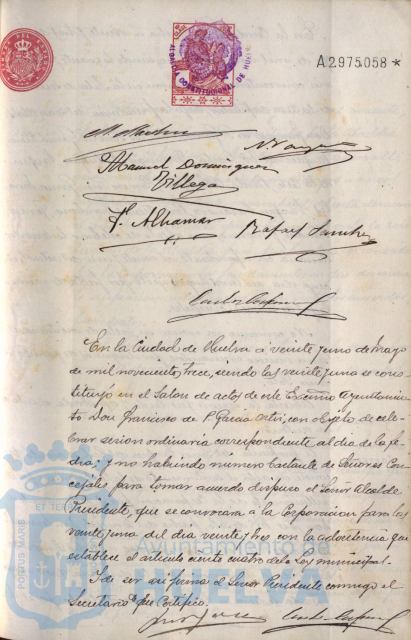 A2975058*
ALCALDIA CONSTITUCIONAL DE HUELVA
N. Vazquez
Manuel Dominguez
Villegas
F. Alhamar
Rafael Sanchez
En la Ciudad de Huelva á veinte y uno de Mayo
de mil novecientos trece, siendo las veinte y una se cons-
tituyó en el Salon de actos de este Excmo Ayuntamien-
to Don Francisco de P. Garcia Ortiz, con objeto de cele-
brar sesion ordinaria correspondiente al dia de la fe-
cha; y no habiendo número bastante de Señores Con-
cejales para tomar acuerdo dispuso el Señor Alcalde
Presidente, que se convocara a la Corporacion para las
veinte y una del dia veinte y tres con la advertencia que
establece el articulo ciento cuatro de la Ley municipal.
Y de ser así firma el Señor Presidente conmigo el
Secretario de que Certifico.
PORTUS MARIS
ET TER
Ayuntamiento de
HUELVA